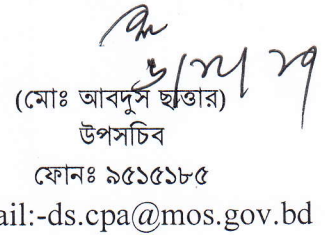 (মোঃ আবদুস ছাত্তার)
উপসচিব
ফোনঃ ৯৫১৫১৮৫
ail:-ds.cpa@mos.gov.bd